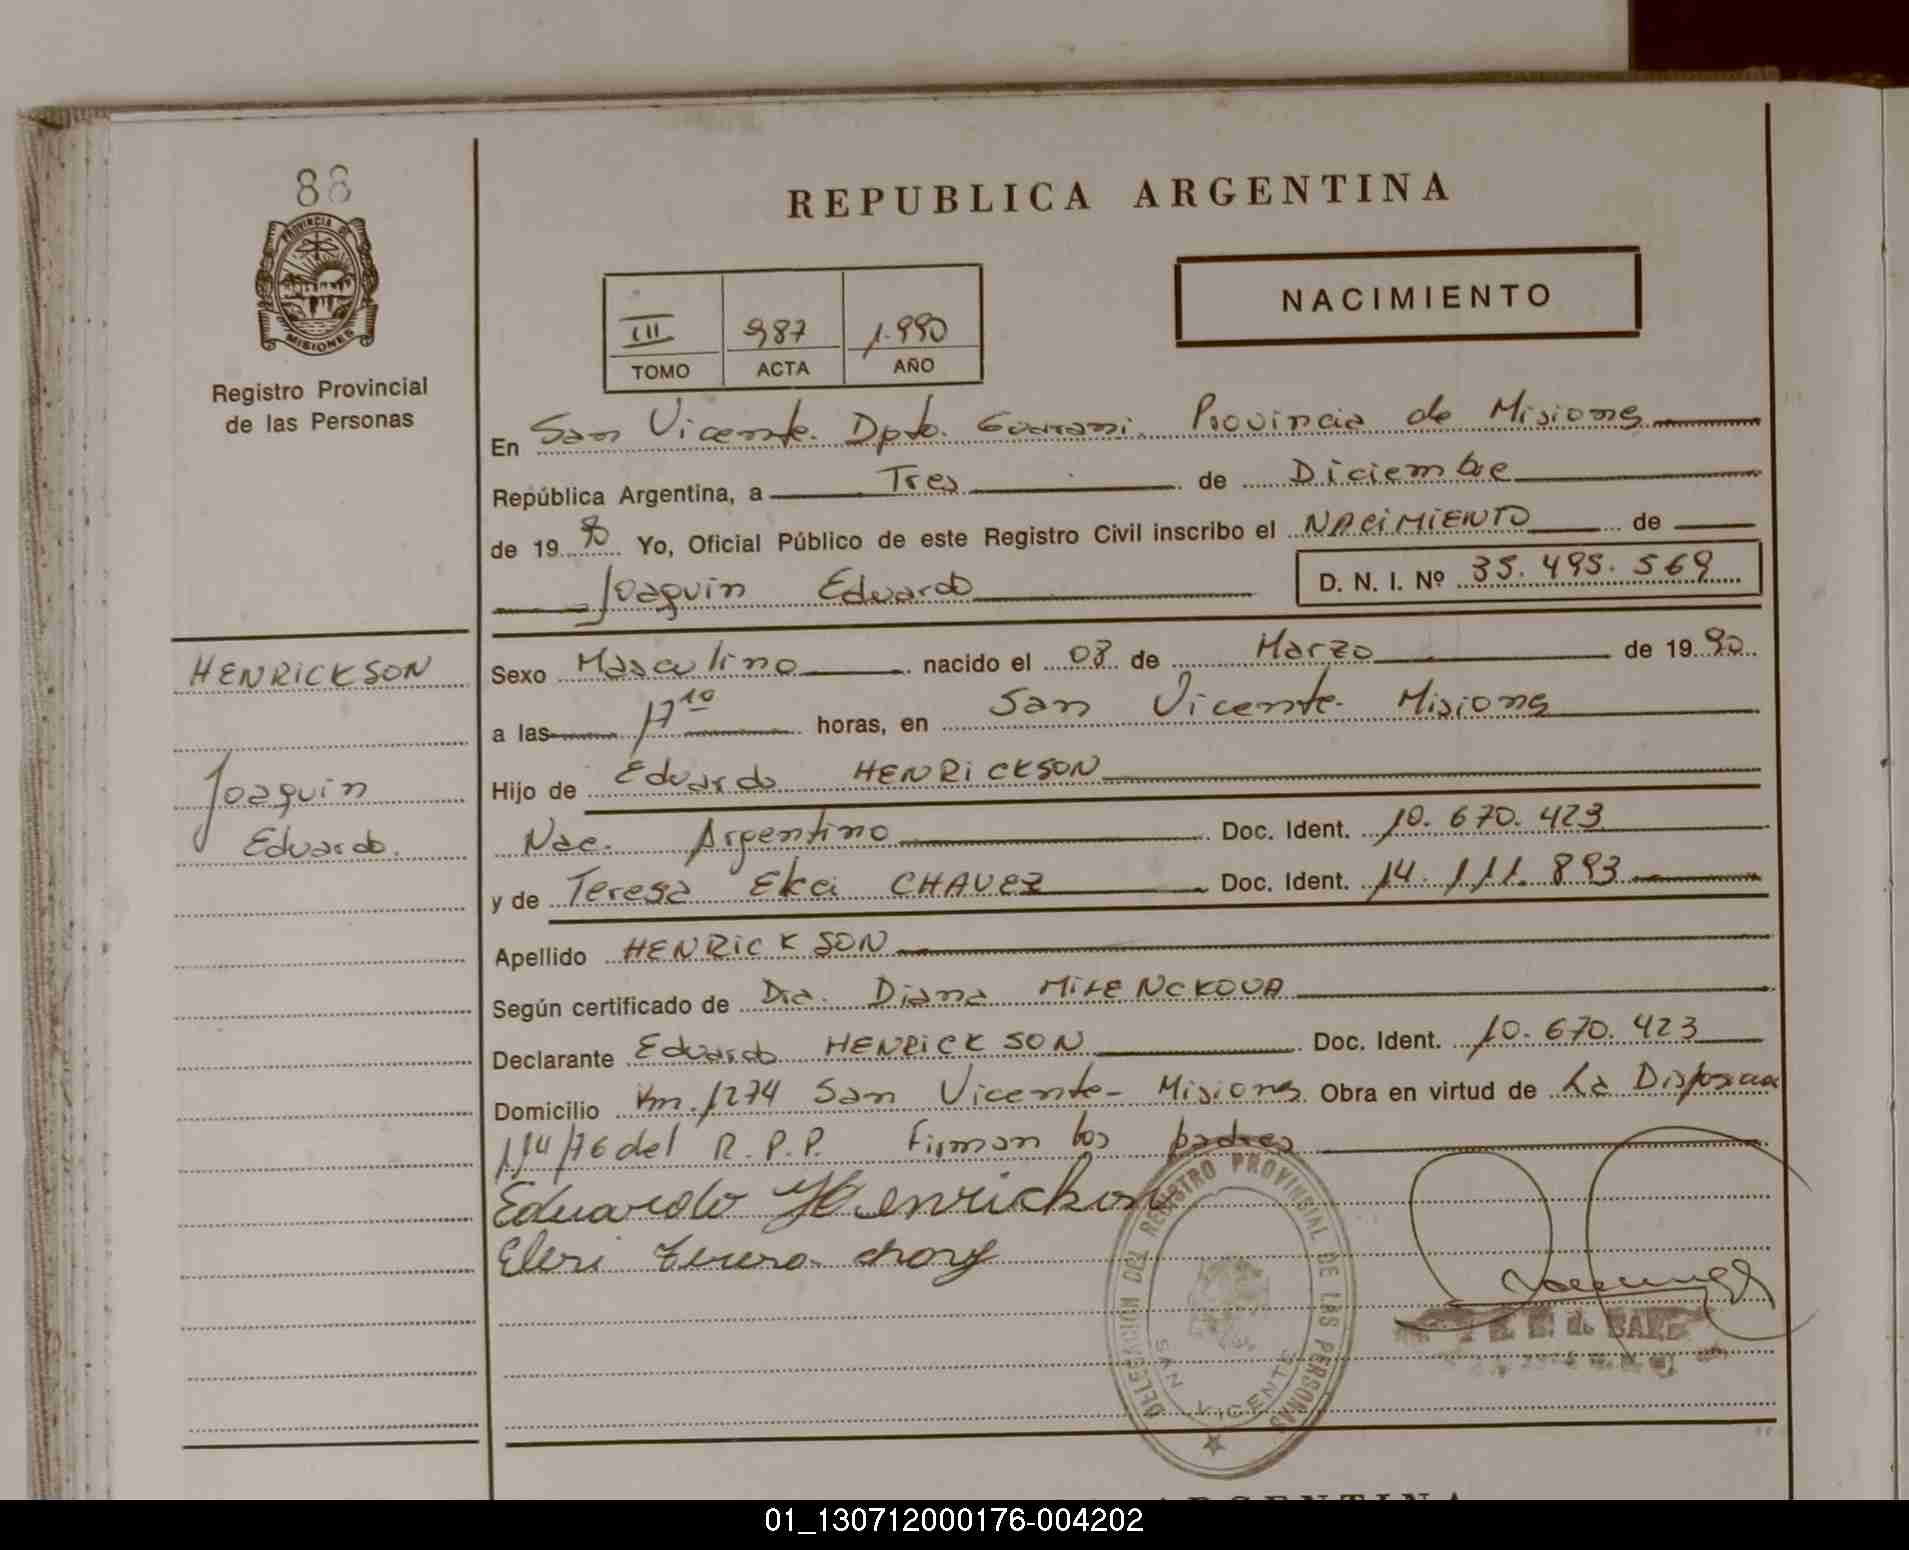 88
PROVINCIA DE
MISIONES
Registro Provincial
de las Personas
REPUBLICA ARGENTINA
NACIMIENTO
III 987 1.990
TOMO ACTA AÑO
En San Vicente. Dpto. Guarani. Provincia de Misiones
República Argentina, a Tres de Diciembre
de 19 90 Yo, Oficial Público de este Registro Civil inscribo el NACIMIENTO de
Joaquin Eduardo D. N. I. Nº 35.495.569
HENRICKSON
Joaquin
Eduardo.
Sexo Masculino nacido el 08 de Marzo de 19 90
a las 17 10 horas, en San Vicente - Misiones
Hijo de Eduardo HENRICKSON
Nac. Argentino Doc. Ident. 10.670.423
y de Teresa CHAVEZ Doc. Ident. 14.111.893
Apellido HENRICKSON
Según certificado de Dra. Diana
Declarante Eduardo HENRICKSON Doc. Ident. 10.670.423
Domicilio Km. 1274 San Vicente - Misiones Obra en virtud de La
114/76 del R.P.P. Firman los padres
Eduardo Henrickson
DELEGACION DEL REGISTRO PROVINCIAL DE LAS PERSONAS
SAN VICENTE
ARGENTINA
01_130712000176-004202